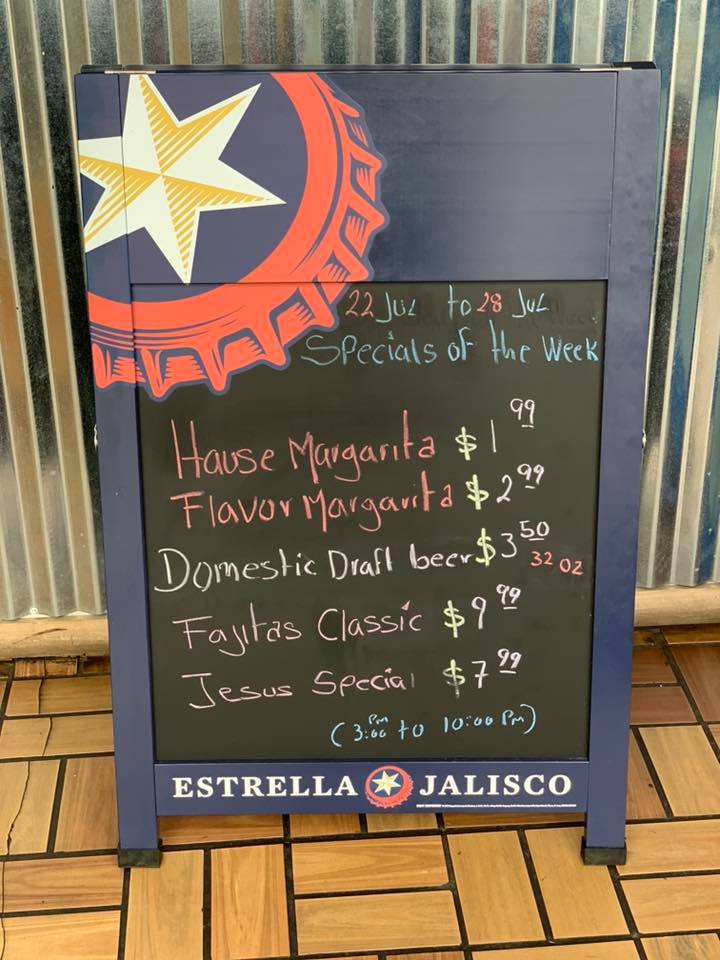 22 Jul to 28 Jul
Specials of the Week
Hause Margarita $1 99
Flavor Margarita $2 99
Domestic Draft beer $3 50
32 oz
Fajitas Classic $9 99
Jesus Special $7 99
(3:00 Pm to 10:00 Pm)
ESTRELLA JALISCO